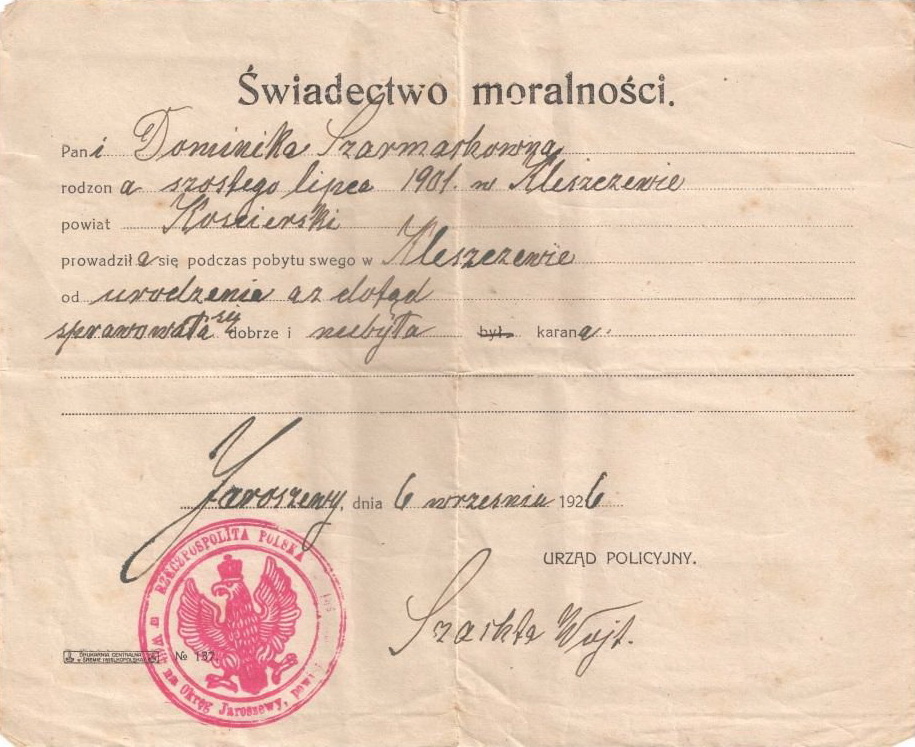 Świadectwo moralności.
Pani Dominika Szarmachowna
rodzona szostego lipca 1901. w Kleszczewie
powiat Kościerski
prowadziła się podczas pobytu swego w Kleszczewie
od urodzenia aż dotąd
sprawowała się dobrze i niebyła był karana.
Jaroszewy, dnia 6 września 1926
URZĄD POLICYJNY.
Wojt.
RZECZPOSPOLITA POLSKA
na Okręg Jaroszewy, pow.
DRUKARNIA CENTRALNA
w ŚREMIE (WIELKOPOLSKA)
№ 137.